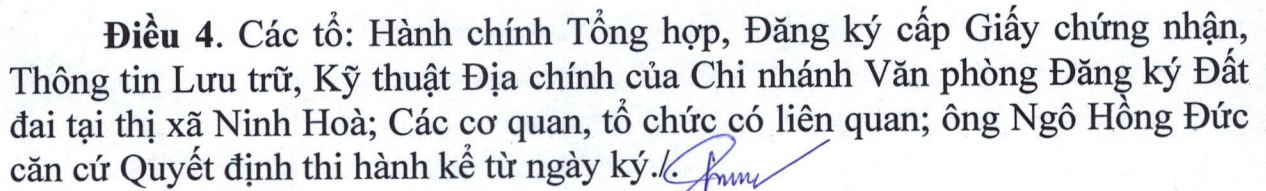 Điều 4. Các tổ: Hành chính Tổng hợp, Đăng ký cấp Giấy chứng nhận,
Thông tin Lưu trữ, Kỹ thuật Địa chính của Chi nhánh Văn phòng Đăng ký Đất
đai tại thị xã Ninh Hoà; Các cơ quan, tổ chức có liên quan; ông Ngô Hồng Đức
căn cứ Quyết định thi hành kể từ ngày ký./.